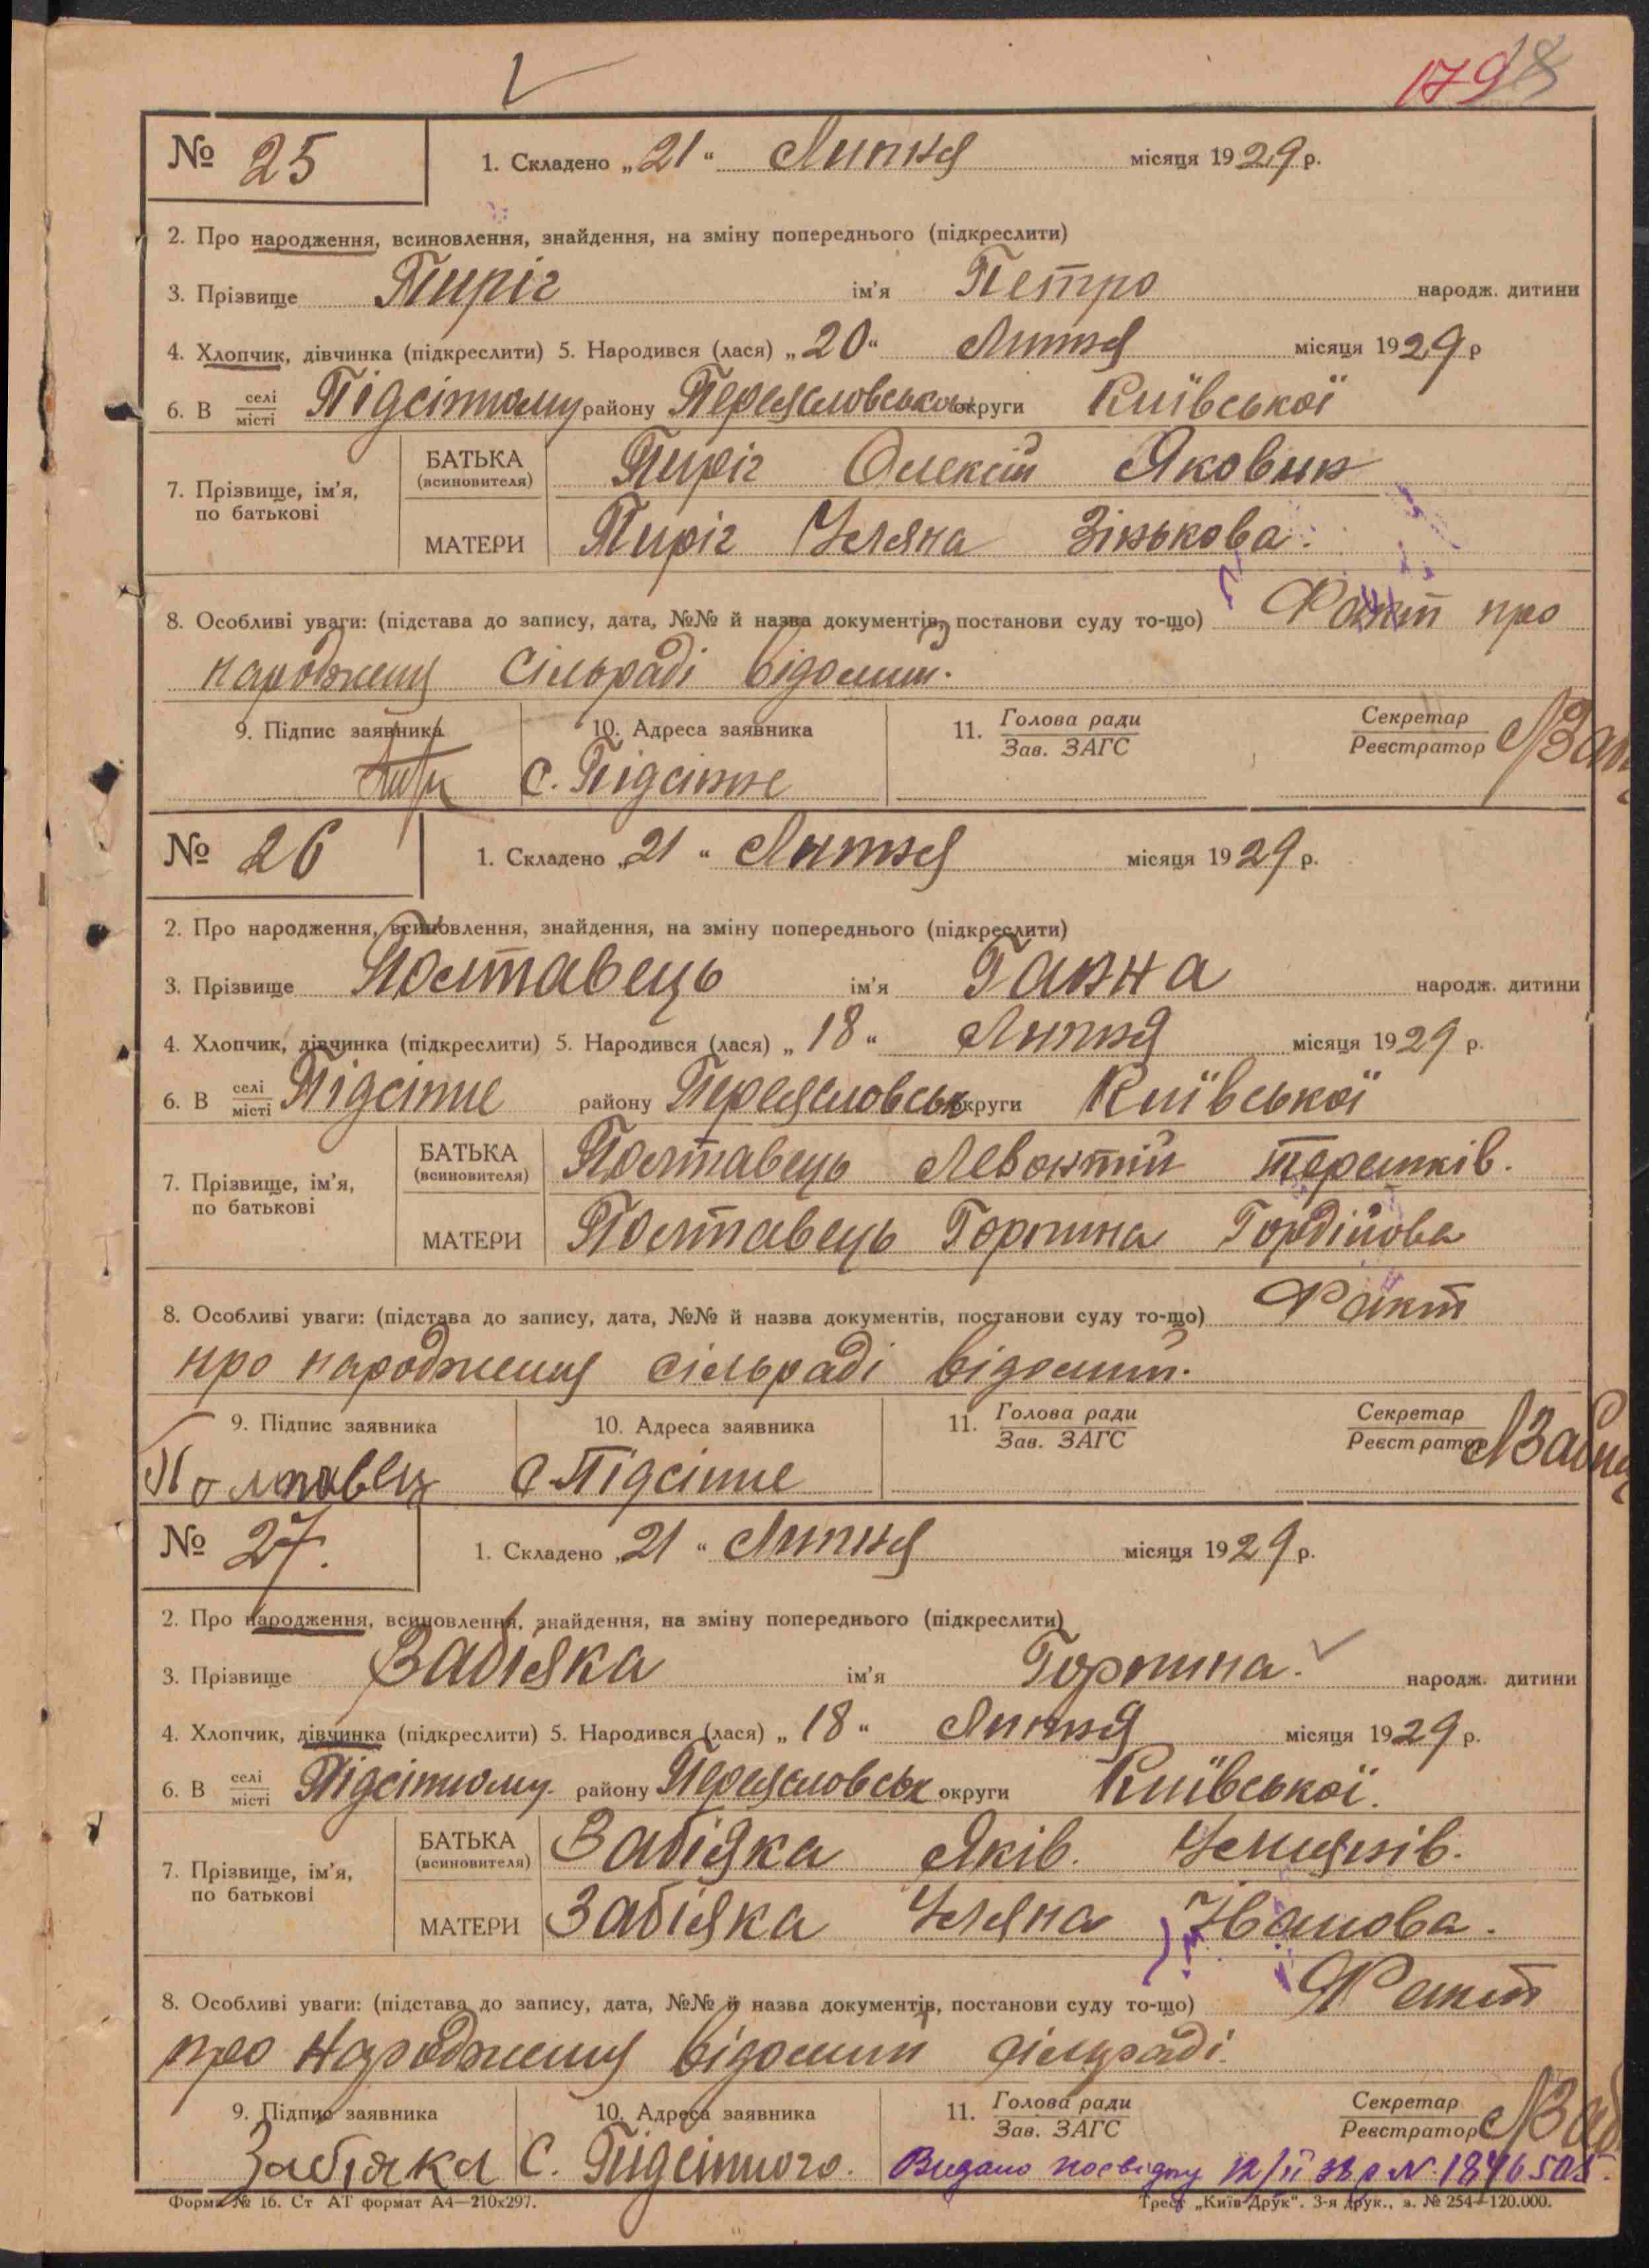 179 18
№ 25 1. Складено „21“ Липня місяця 1929 р.
2. Про народження, всиновлення, знайдення, на зміну попереднього (підкреслити)
3. Прізвище Пиріг ім'я Петро народж. дитини
4. Хлопчик, дівчинка (підкреслити) 5. Народився (лася) „20“ Липня місяця 1929 р
6. В селі місті Підсінному району Переясловськой округи Київської
7. Прізвище, ім'я, по батькові БАТЬКА (всиновителя) Пиріг Олексій Яковин
МАТЕРИ Пиріг Уляна Зінькова.
8. Особливі уваги: (підстава до запису, дата, №№ й назва документів, постанови суду то-що) Факт про
народження Сільраді відомий.
9. Підпис заявника 10. Адреса заявника 11. Голова ради Зав. ЗАГС Секретар Реєстратор
с. Підсінне
№ 26 1. Складено „21“ Липня місяця 1929 р.
2. Про народження, всиновлення, знайдення, на зміну попереднього (підкреслити)
3. Прізвище Полтавець ім'я Ганна народж. дитини
4. Хлопчик, дівчинка (підкреслити) 5. Народився (лася) „18“ Липня місяця 1929 р.
6. В селі місті Підсінне району Переясловськ округи Київської
7. Прізвище, ім'я, по батькові БАТЬКА (всиновителя) Полтавець Левонтій Терешків.
МАТЕРИ Полтавець Горпина Гордійова
8. Особливі уваги: (підстава до запису, дата, №№ й назва документів, постанови суду то-що) Факт
про народження сільраді відомий.
9. Підпис заявника 10. Адреса заявника 11. Голова ради Зав. ЗАГС Секретар Реєстратор
Полтавец с Підсінне
№ 27. 1. Складено „21“ Липня місяця 1929 р.
2. Про народження, всиновлення, знайдення, на зміну попереднього (підкреслити)
3. Прізвище Забіяка ім'я Горпина. народж. дитини
4. Хлопчик, дівчинка (підкреслити) 5. Народився (лася) „18“ Липня місяця 1929 р.
6. В селі місті Підсінному району Переясловськ округи Київської.
7. Прізвище, ім'я, по батькові БАТЬКА (всиновителя) Забіяка Яків.
МАТЕРИ Забіяка Уляна Іванова.
8. Особливі уваги: (підстава до запису, дата, №№ й назва документів, постанови суду то-що) Факт
про народження відомий сільраді.
9. Підпис заявника 10. Адреса заявника 11. Голова ради Зав. ЗАГС Секретар Реєстратор
Забіяка С. Підсінного. Видано посвідку 12/ІІ 38 р №
Форма № 16. Ст АТ формат А4—210х297. Трест „Київ-Друк“. 3-я друк., з. № 254—120.000.